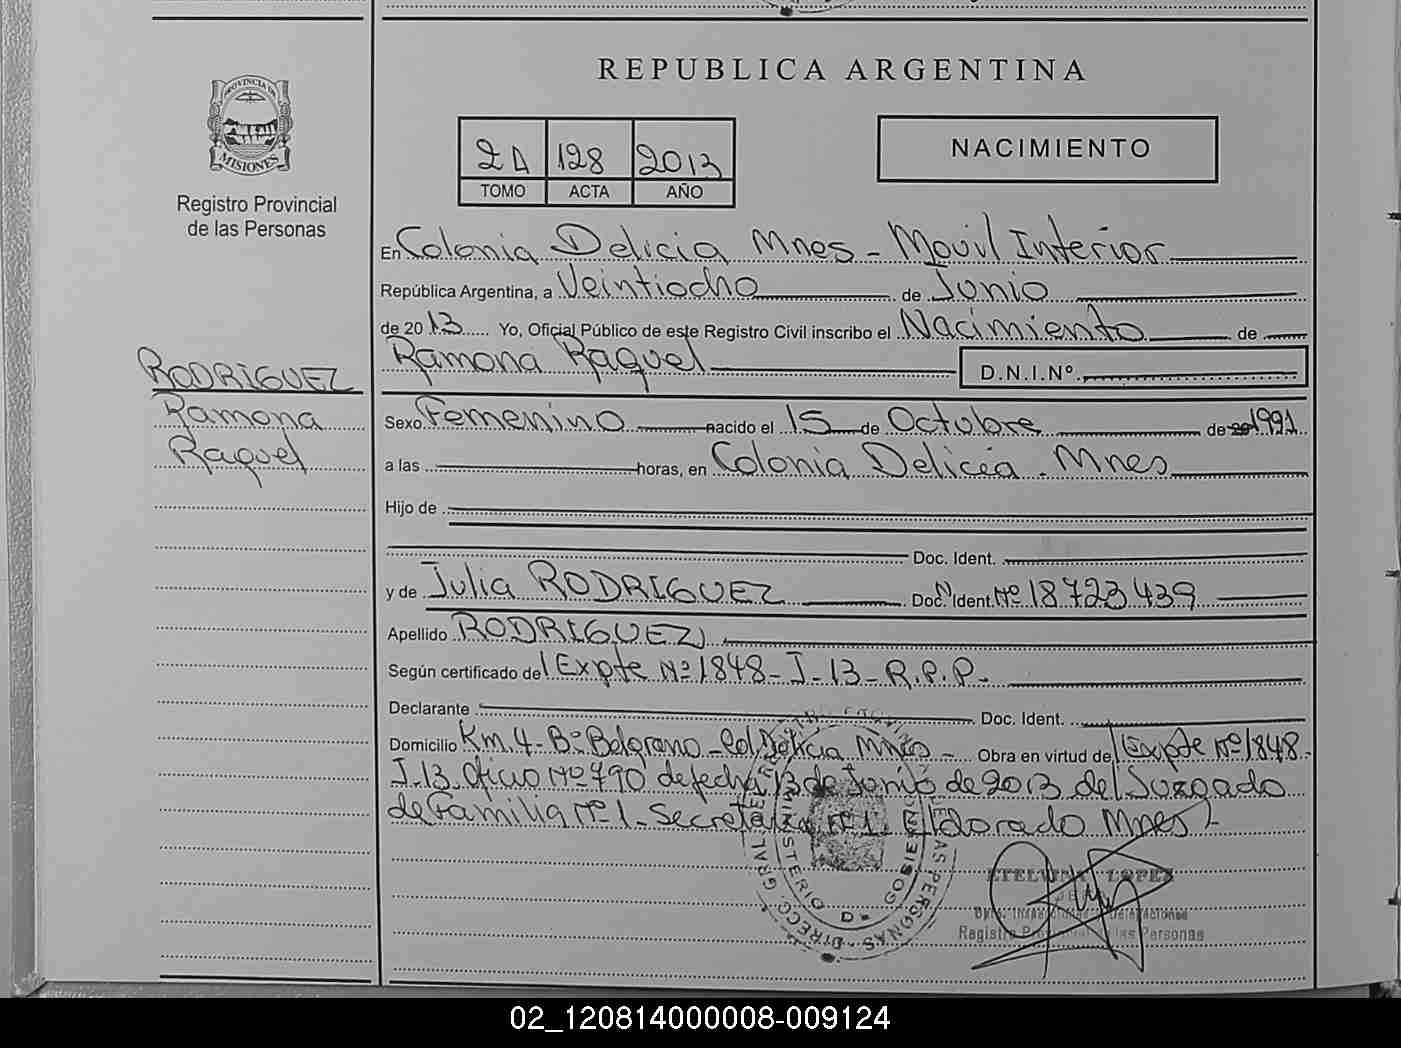 REPUBLICA ARGENTINA
PROVINCIA DE
MISIONES
Registro Provincial
de las Personas
2D 128 2013
TOMO ACTA AÑO
NACIMIENTO
En Colonia Delicia Mnes - Movil Interior
República Argentina, a Veintiocho de Junio
de 2013 Yo, Oficial Público de este Registro Civil inscribo el Nacimiento de
Ramona Raquel D.N.I.Nº
RODRIGUEZ
Ramona
Raquel
Sexo Femenino nacido el 15 de Octubre de 20 1991
a las horas, en Colonia Delicia - Mnes
Hijo de
Doc. Ident.
y de Julia RODRIGUEZ Doc. Ident. Nº 18723439
Apellido RODRIGUEZ
Según certificado del Expte Nº 1848 - J - 13 - R.P.P.
Declarante Doc. Ident.
Domicilio Km. 4 - Bº Belgrano - Col. Delicia Mnes - Obra en virtud del Expte Nº 1848 -
J-13 Oficio Nº 790 de fecha 13 de Junio de 2013 del Juzgado
de Familia Nº 1 - Secretaria Nº 1. Eldorado Mnes -
DIRECC. GRAL. DE PERSONAS
MINISTERIO DE GOBIERNO
ETELVINA LOPEZ
Registro Provincial de las Personas
02_120814000008-009124